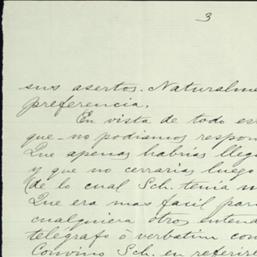 3
sus asertos. Naturalme
preferencia.
En vista de todo es
que no podiamos respon
Que apenas habrias lleg
y que no cerrarias luego
(de lo cual Sch. tenia m
Que era mas facil par
cualquiera otros entend
telégrafo ó verbatim con
Convino Sch. en referir